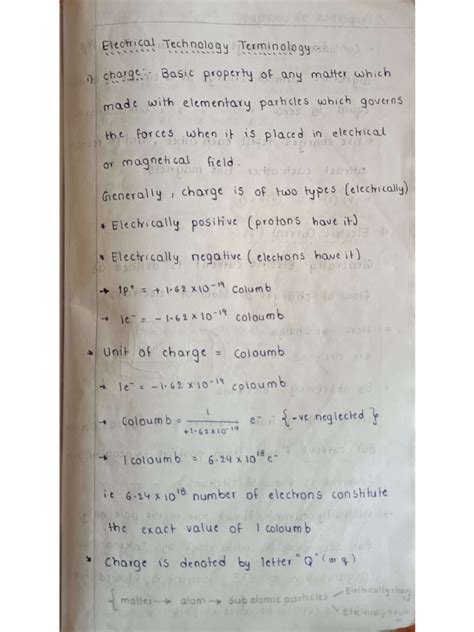 Electrical Technology Terminology :-
i) charge:- Basic property of any matter which
made with elementary particles which governs
the forces when it is placed in electrical
or magnetical field.
Generally, charge is of two types (electrically)
* Electrically positive (protons have it)
* Electrically negative (electrons have it)
→ 1p⁺ = +1.62 x 10⁻¹⁹ Columb
→ 1e⁻ = -1.62 x 10⁻¹⁹ coloumb
* Unit of charge = Coloumb
→ 1e⁻ = -1.62 x 10⁻¹⁹ coloumb
→ Coloumb = 1 / +1.62x10⁻¹⁹ e⁻ {-ve neglected}
→ 1 coloumb = 6.24 x 10¹⁸ e⁻
ie 6.24 x 10¹⁸ number of electrons constitute
the exact value of 1 coloumb
* Charge is denoted by letter "Q" (or q)
{ matter → atom → sub atomic particles Electrically
Electrically